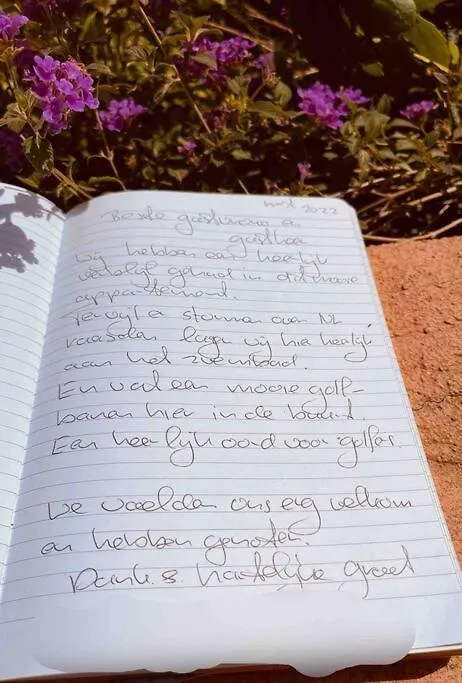 mrt 2022
Beste gastvrouw en
gastheer
Wij hebben een heerlijk
verblijf gehad in dit mooie
appartement.
Terwijl de stormen over NL
raasden lagen wij hier heerlijk
aan het zwembad.
En wat een mooie golf-
banen hier in de buurt.
Een heerlijk oord voor golfers.
We voelden ons erg welkom
en hebben genoten.
Dank & hartelijke groet